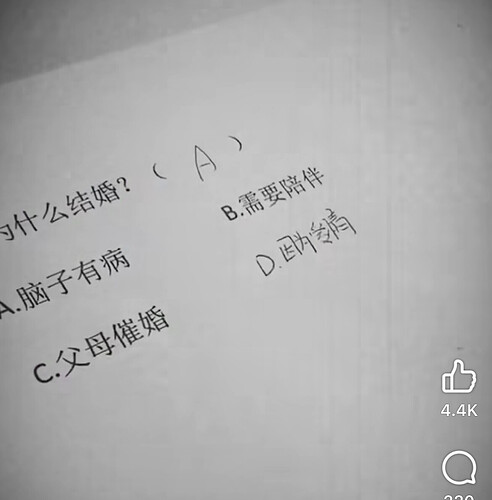 为什么结婚?( A )
A.脑子有病 B.需要陪伴
C.父母催婚 D.因为爱情
4.4K